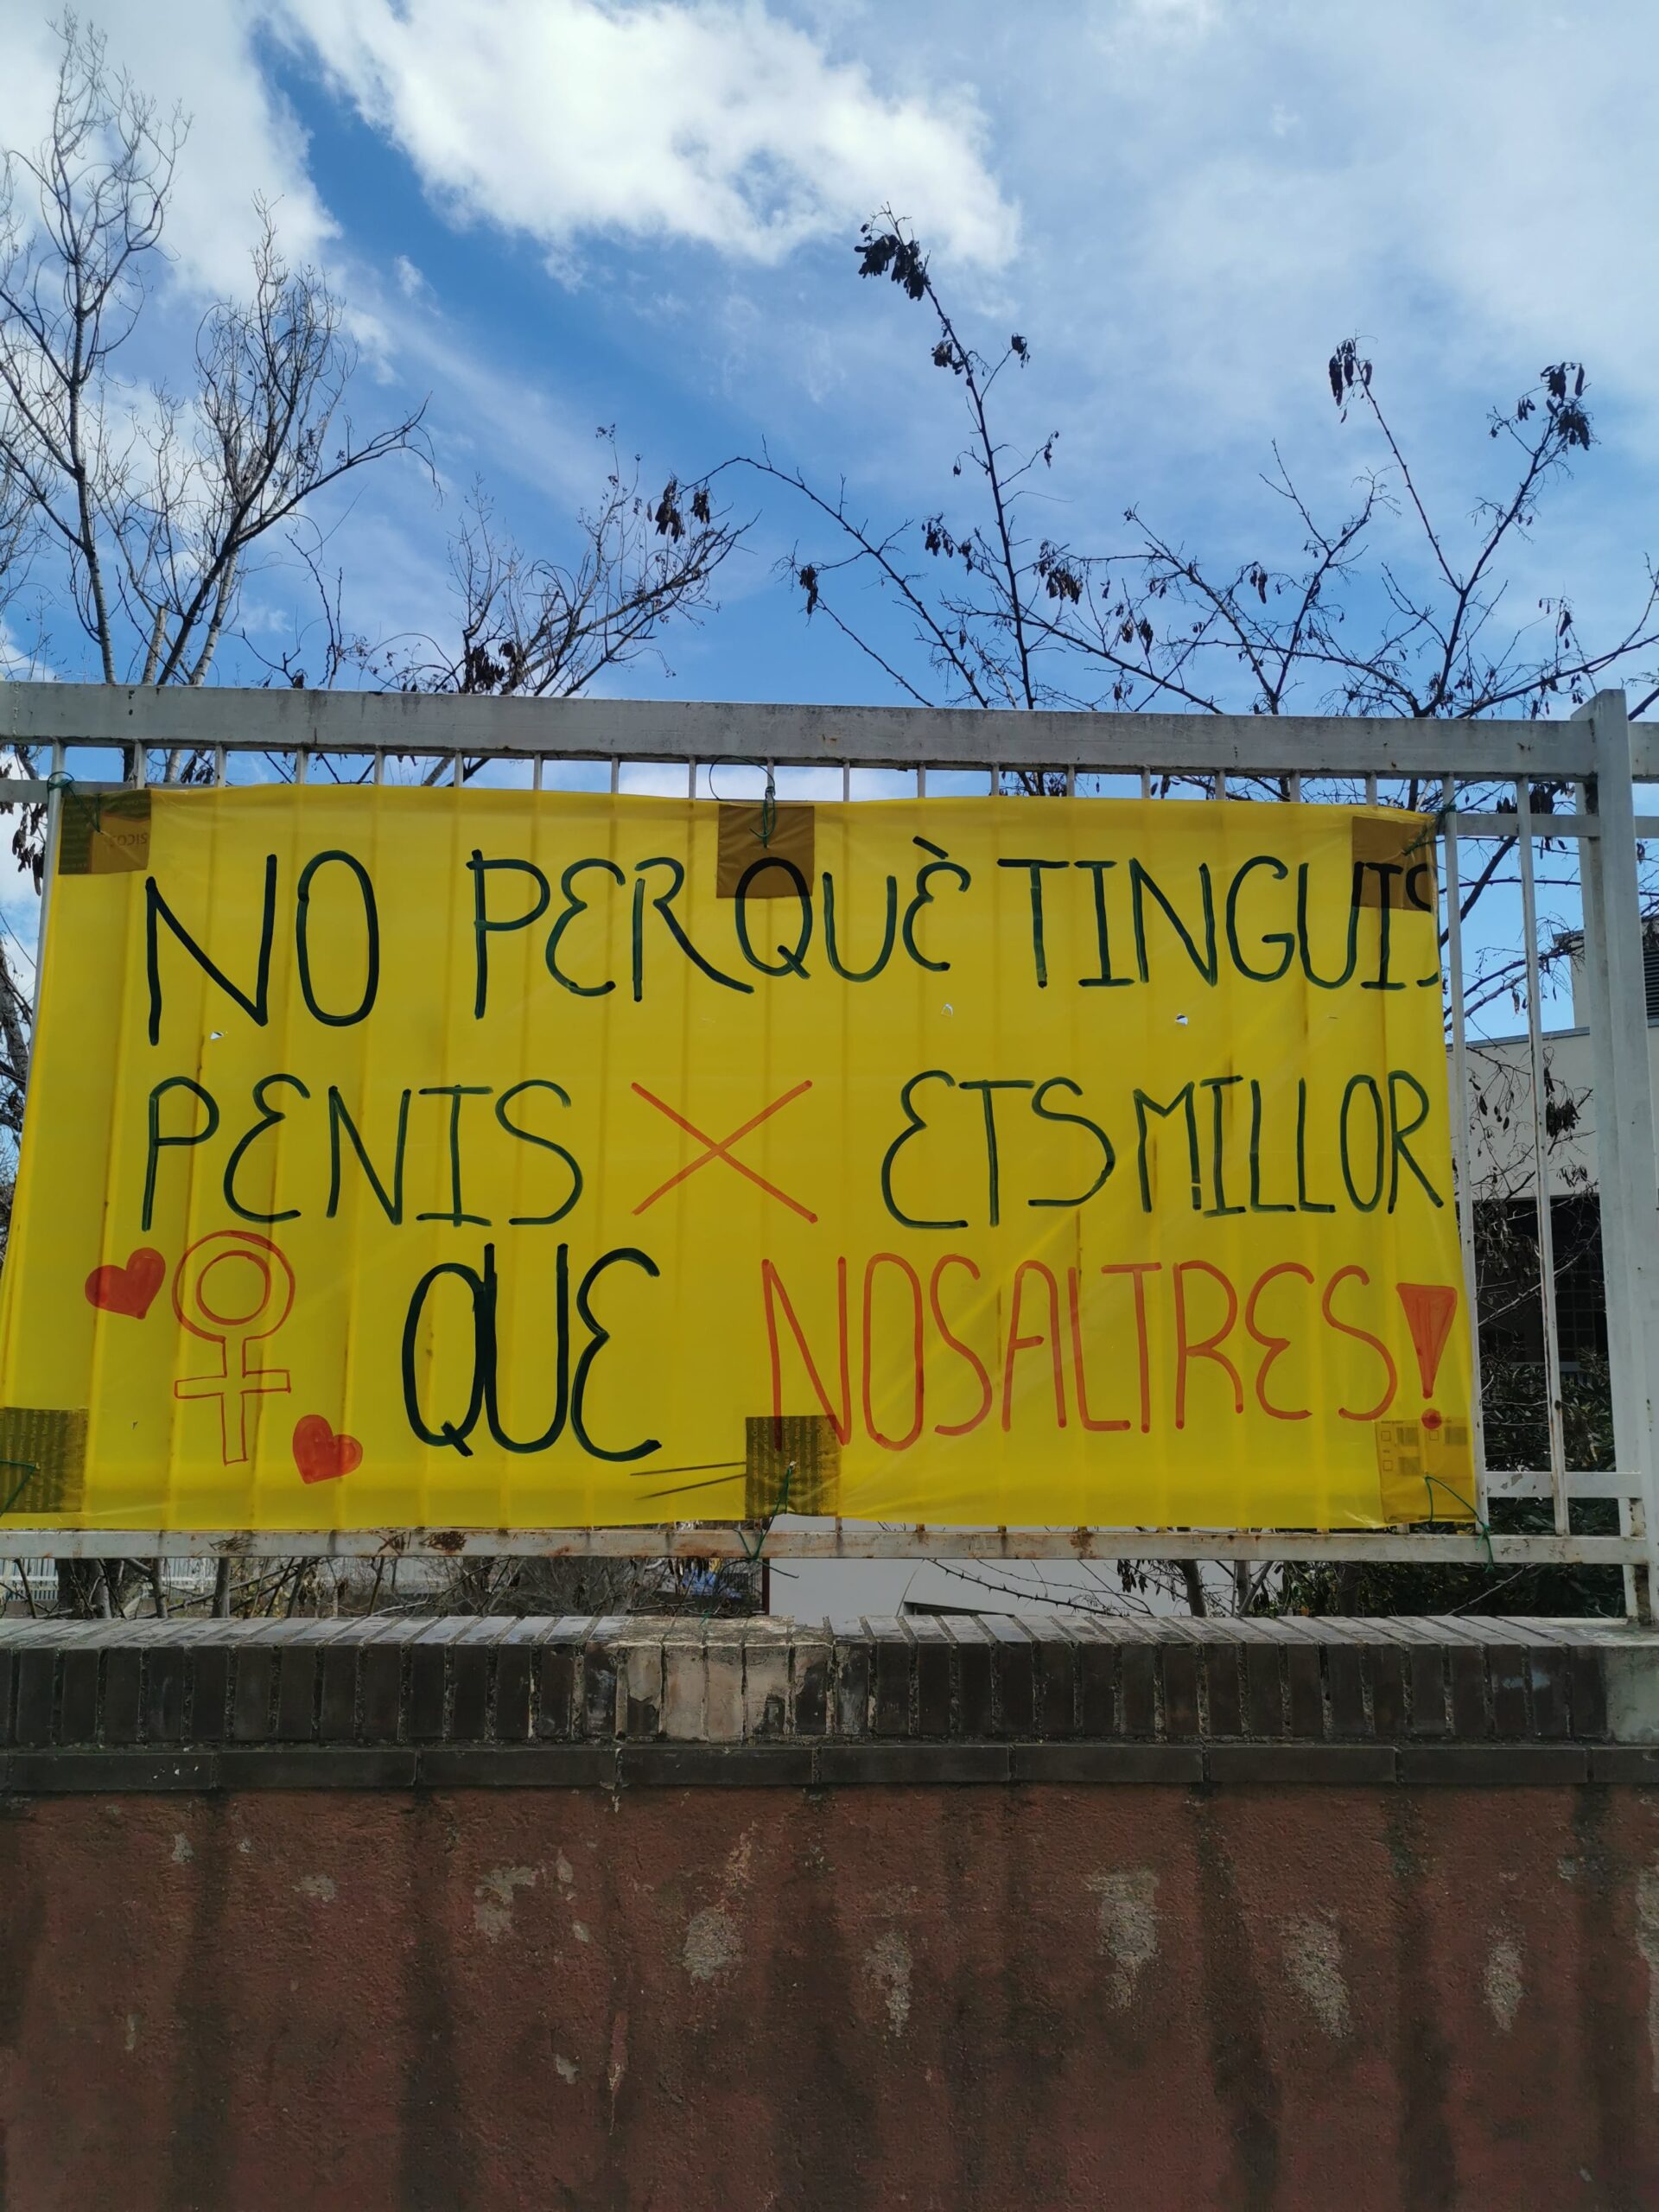 NO PERQUÈ TINGUIS
PENIS X ETS MILLOR
QUE NOSALTRES!